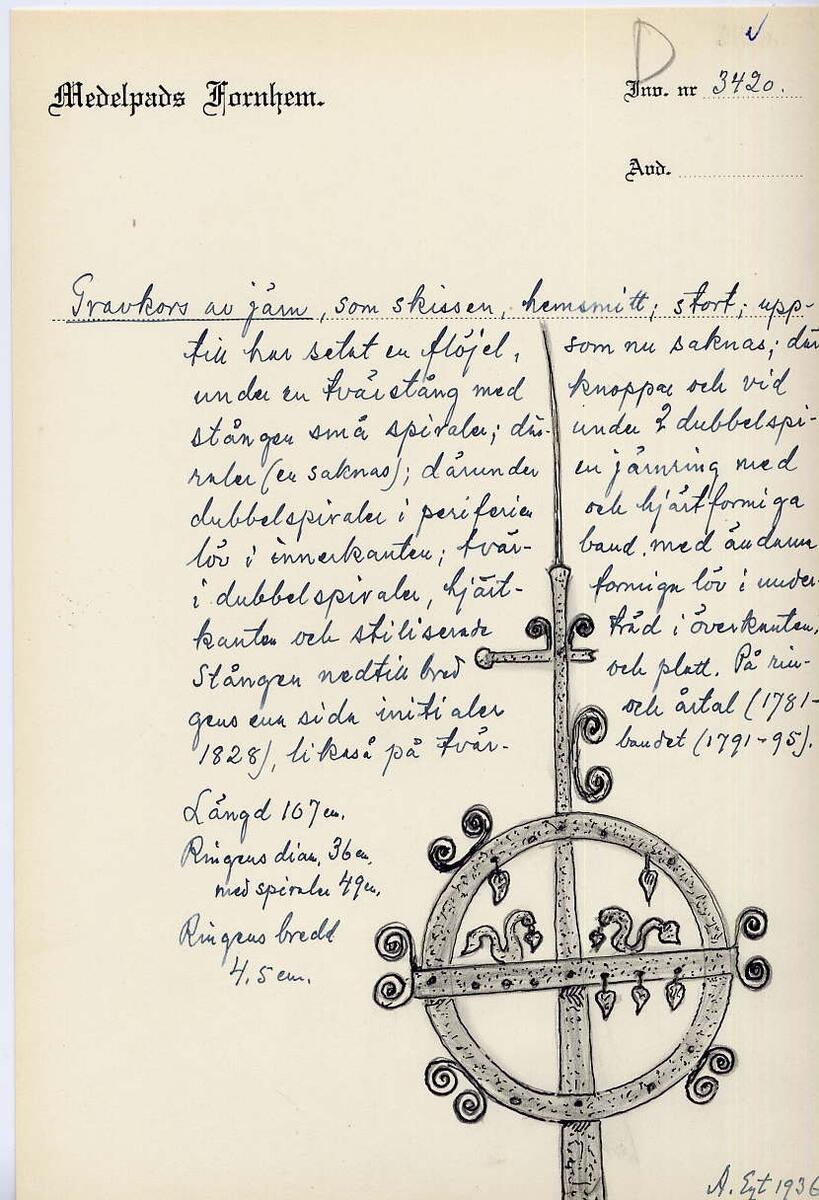 D
Medelpads Fornhem.
Inv. nr 3420.
Avd.
Gravkors av järn, som skissen, hemsmitt; stort; upp-
till har setat en flöjel, som nu saknas; där
under en tvärstång med knoppar och vid
stången små spiraler; där- under 2 dubbelspi-
raler (en saknas); därunder en järnring med
dubbelspiraler i periferien och hjärtformiga
löv i innerkanten; tvär- band med ändarna
i dubbelspiraler, hjärt- formiga löv i under-
kanten och stiliserade träd i överkanten.
Stången nedtill bred och platt. På rin-
gens ena sida initialer och årtal (1781-
1828), likaså på tvär- bandet (1791-95).
Längd 167 cm.
Ringens diam. 36 cm,
med spiraler 49 cm.
Ringens bredd
4.5 cm.
1936